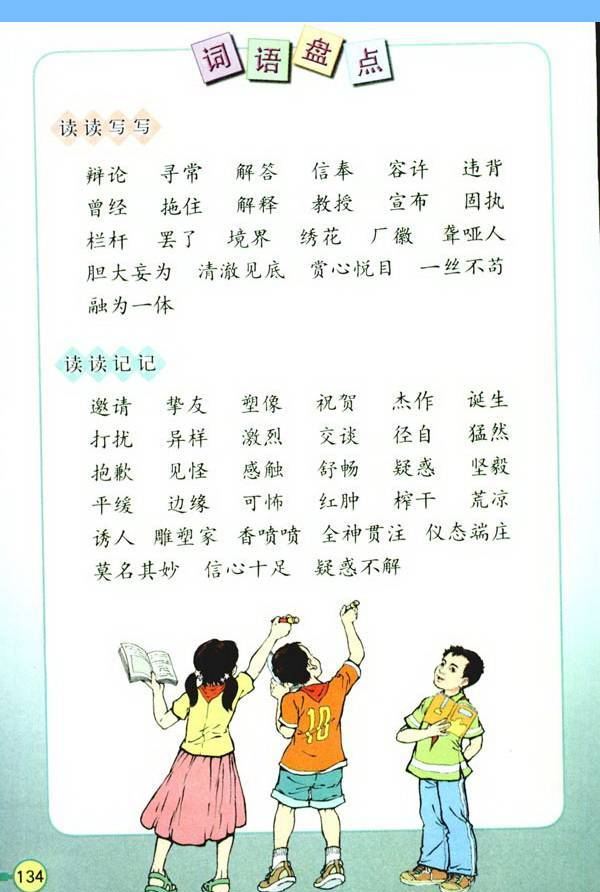 词语盘点
读读写写
辩论 寻常 解答 信奉 容许 违背
曾经 拖住 解释 教授 宣布 固执
栏杆 罢了 境界 绣花 厂徽 聋哑人
胆大妄为 清澈见底 赏心悦目 一丝不苟
融为一体
读读记记
邀请 挚友 塑像 祝贺 杰作 诞生
打扰 异样 激烈 交谈 径自 猛然
抱歉 见怪 感触 舒畅 疑惑 坚毅
平缓 边缘 可怖 红肿 榨干 荒凉
诱人 雕塑家 香喷喷 全神贯注 仪态端庄
莫名其妙 信心十足 疑惑不解
10
134